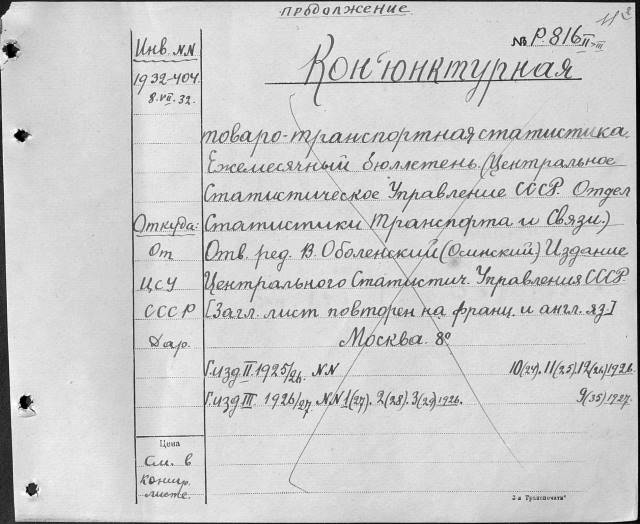 продолжение
11²
№ Р.816 II-III
Инв. NN
1932-404.
8.VII.32.
Кон'юнктурная
товаро-транспортная статистика.
Ежемесячный бюллетень. (Центральное
Статистическое Управление СССР. Отдел
Откуда: Статистики Транспорта и Связи.)
От Отв. ред. В. Оболенский (Осинский) Издание
ЦСУ Центрального Статистич. Управления СССР.
СССР [Загл. лист повторен на франц. и англ. яз.]
Дар. Москва. 8°
Г. изд II. 1925/26. NN 10(24). 11(25). 12(26) 1926.
Г. изд III 1926/27. NN 1(27). 2(28). 3(29) 1926. 9(35) 1927.
Цена
См. в
контр.
листе.
3-я Транспечать"